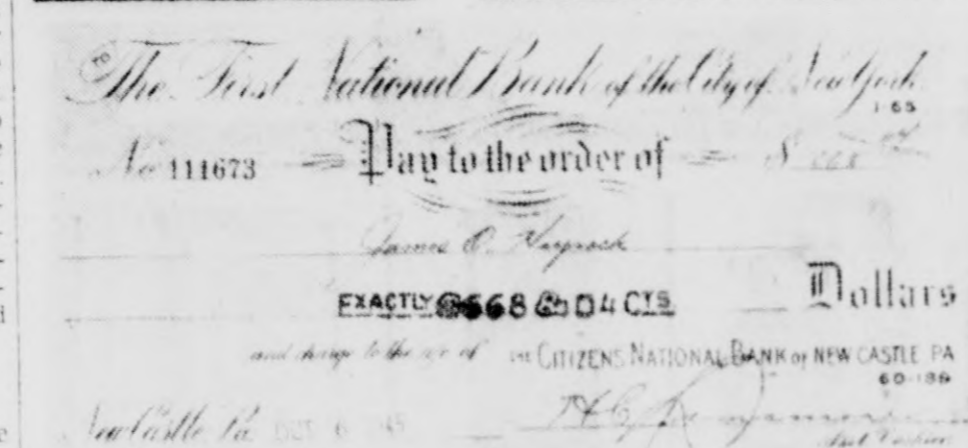 The First National Bank of the City of New York
1-65
No 111673 Pay to the order of $
James O.
EXACTLY 668 04 CTS Dollars
and charge to the a/c of THE CITIZENS NATIONAL BANK OF NEW CASTLE PA
60-186
New Castle Pa OCT 6